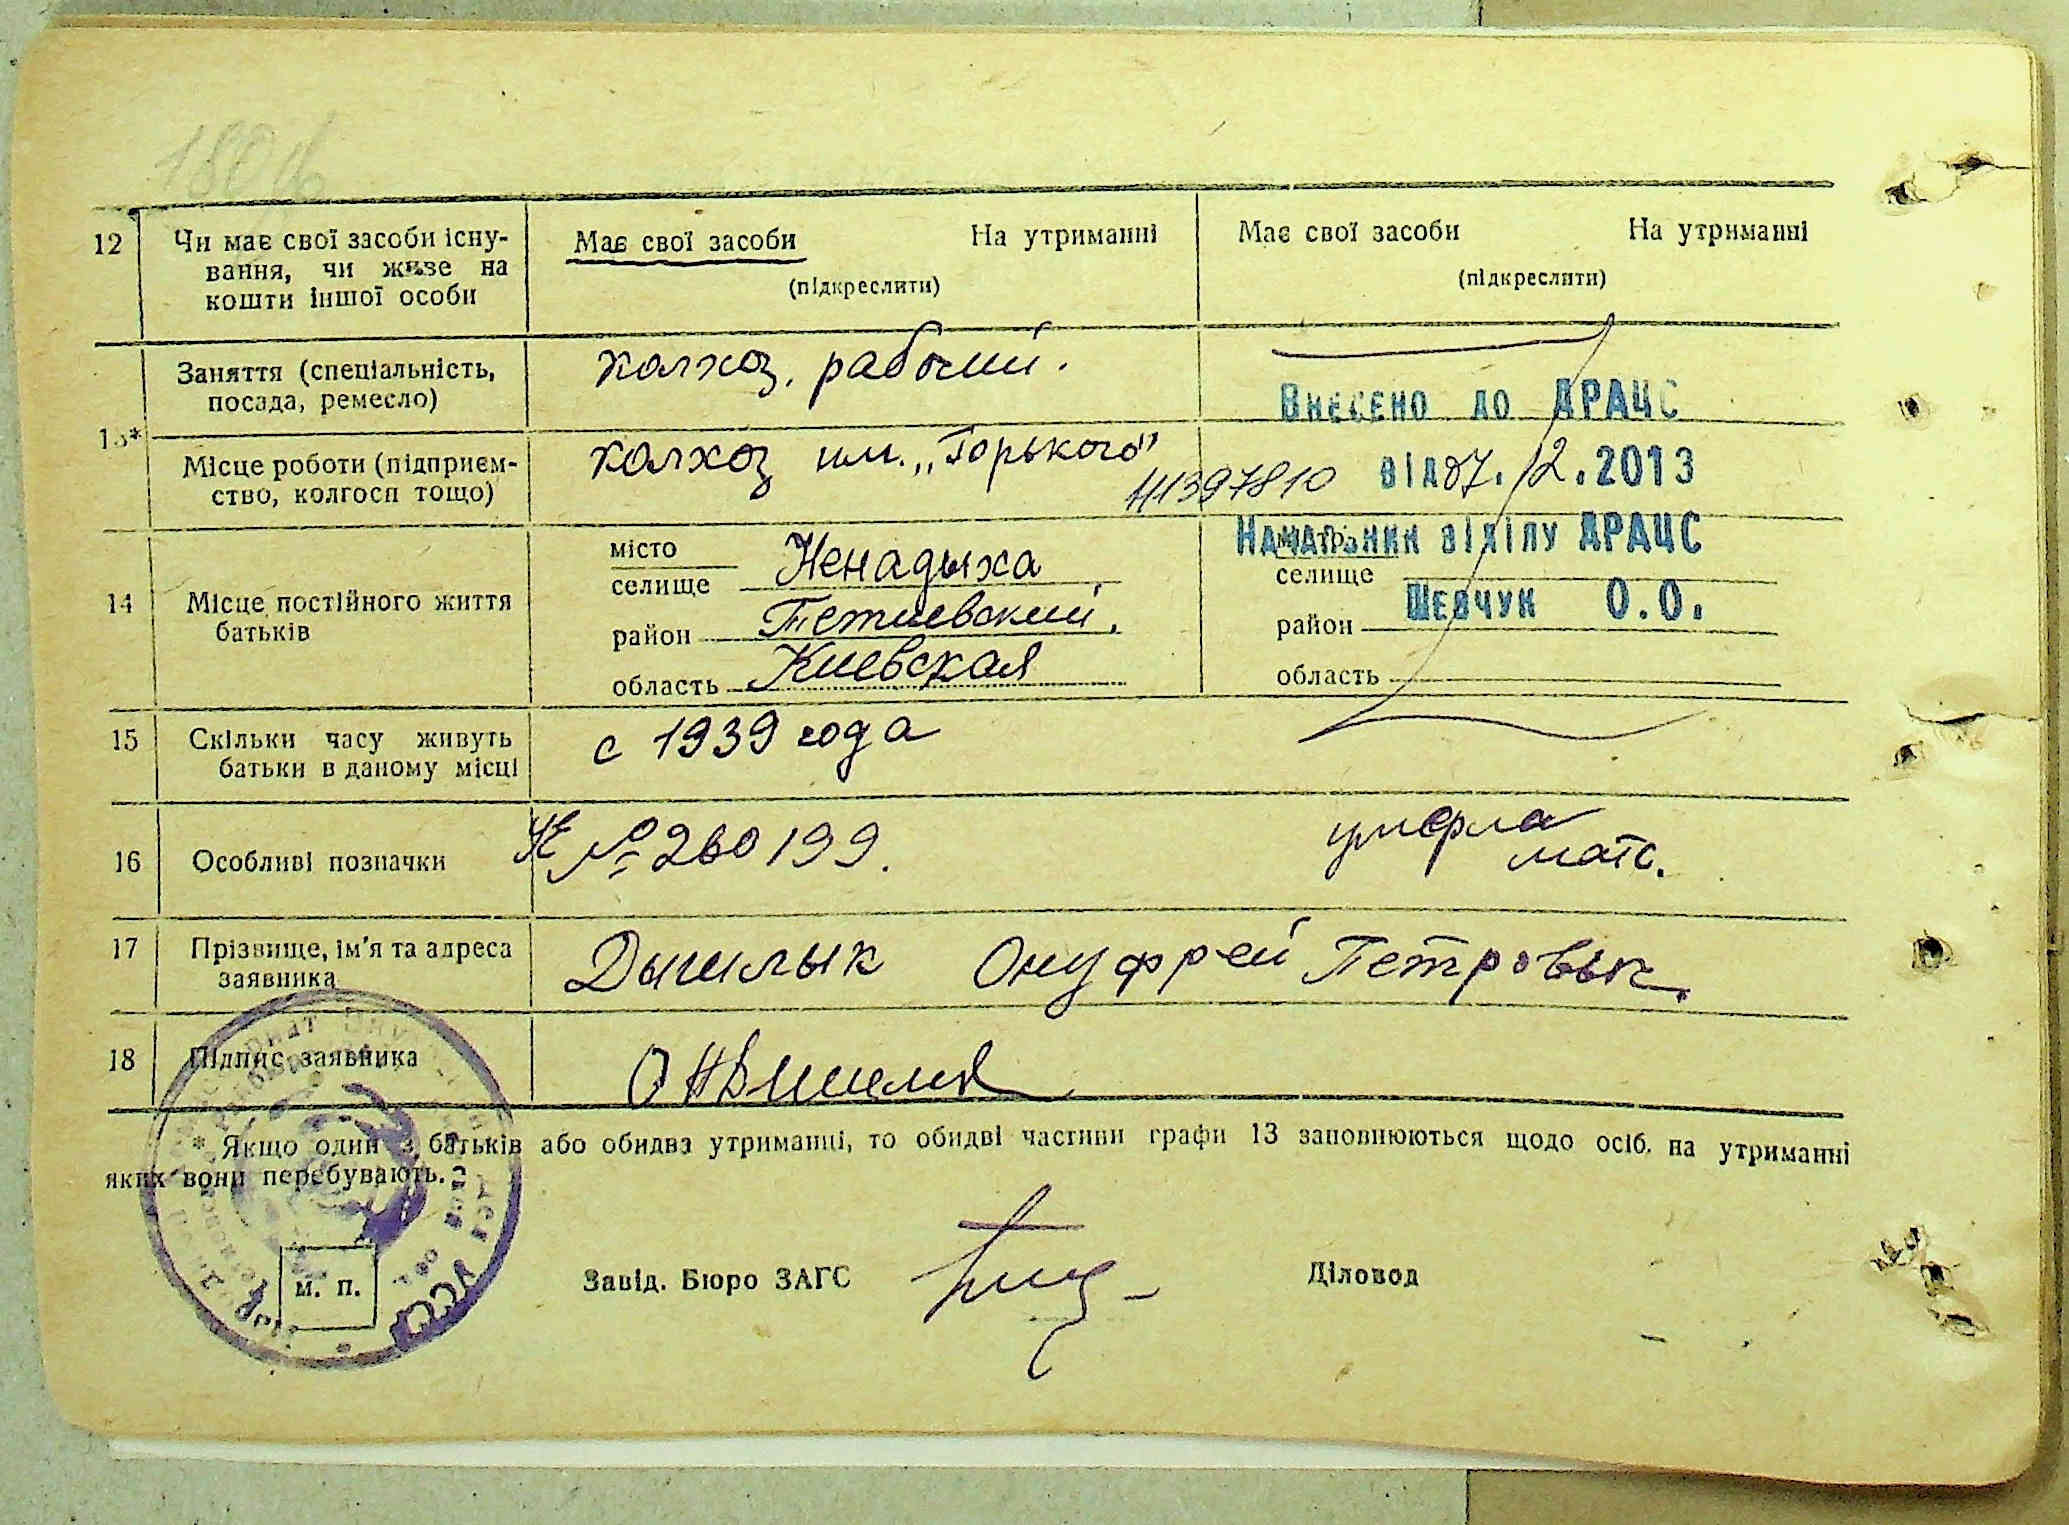 12 Чи має свої засоби існу-
вання, чи живе на
кошти іншої особи
Має свої засоби На утриманні
(підкреслити)
Має свої засоби На утриманні
(підкреслити)
13*
Заняття (спеціальність,
посада, ремесло)
колхоз. рабочий.
Внесено до ДРАЦС
Місце роботи (підприєм-
ство, колгосп тощо)
колхоз им. „Горького"
11397810 від 07.12.2013
Начальник відділу ДРАЦС
Шевчук О.О.
14 Місце постійного життя
батьків
місто
селище Ненадыха
район Тетиевский.
область Киевская
селище
район
область
15 Скільки часу живуть
батьки в даному місці
с 1939 года
16 Особливі позначки
№ 260199.
умерла
мать.
17 Прізвище, ім'я та адреса
заявника
Онуфрей Петровьк.
18 Підпис заявника
* Якщо один з батьків або обидва утриманні, то обидві частини графи 13 заповнюються щодо осіб, на утриманні
яких вони перебувають.
УССР
м. п.
Завід. Бюро ЗАГС
Діловод